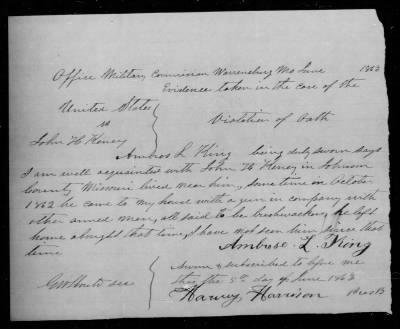 Office Military Commission Warrensburg Mo June 1863
Evidence taken in the case of the
United States
vs
John H Heney
Violation of Oath
Ambros L King being duly sworn says
I am well acquainted with John H Heney in Johnson
County Missouri lived near him, some time in October
1862 he came to my house with a gun in company with
other armed men, all said to be bushwackers, he left
home about that time, I have not seen him since that
time
Ambrose L. King
Sworn & subscribed to before me
this the 5th day of June 1863
Harvey Harrison